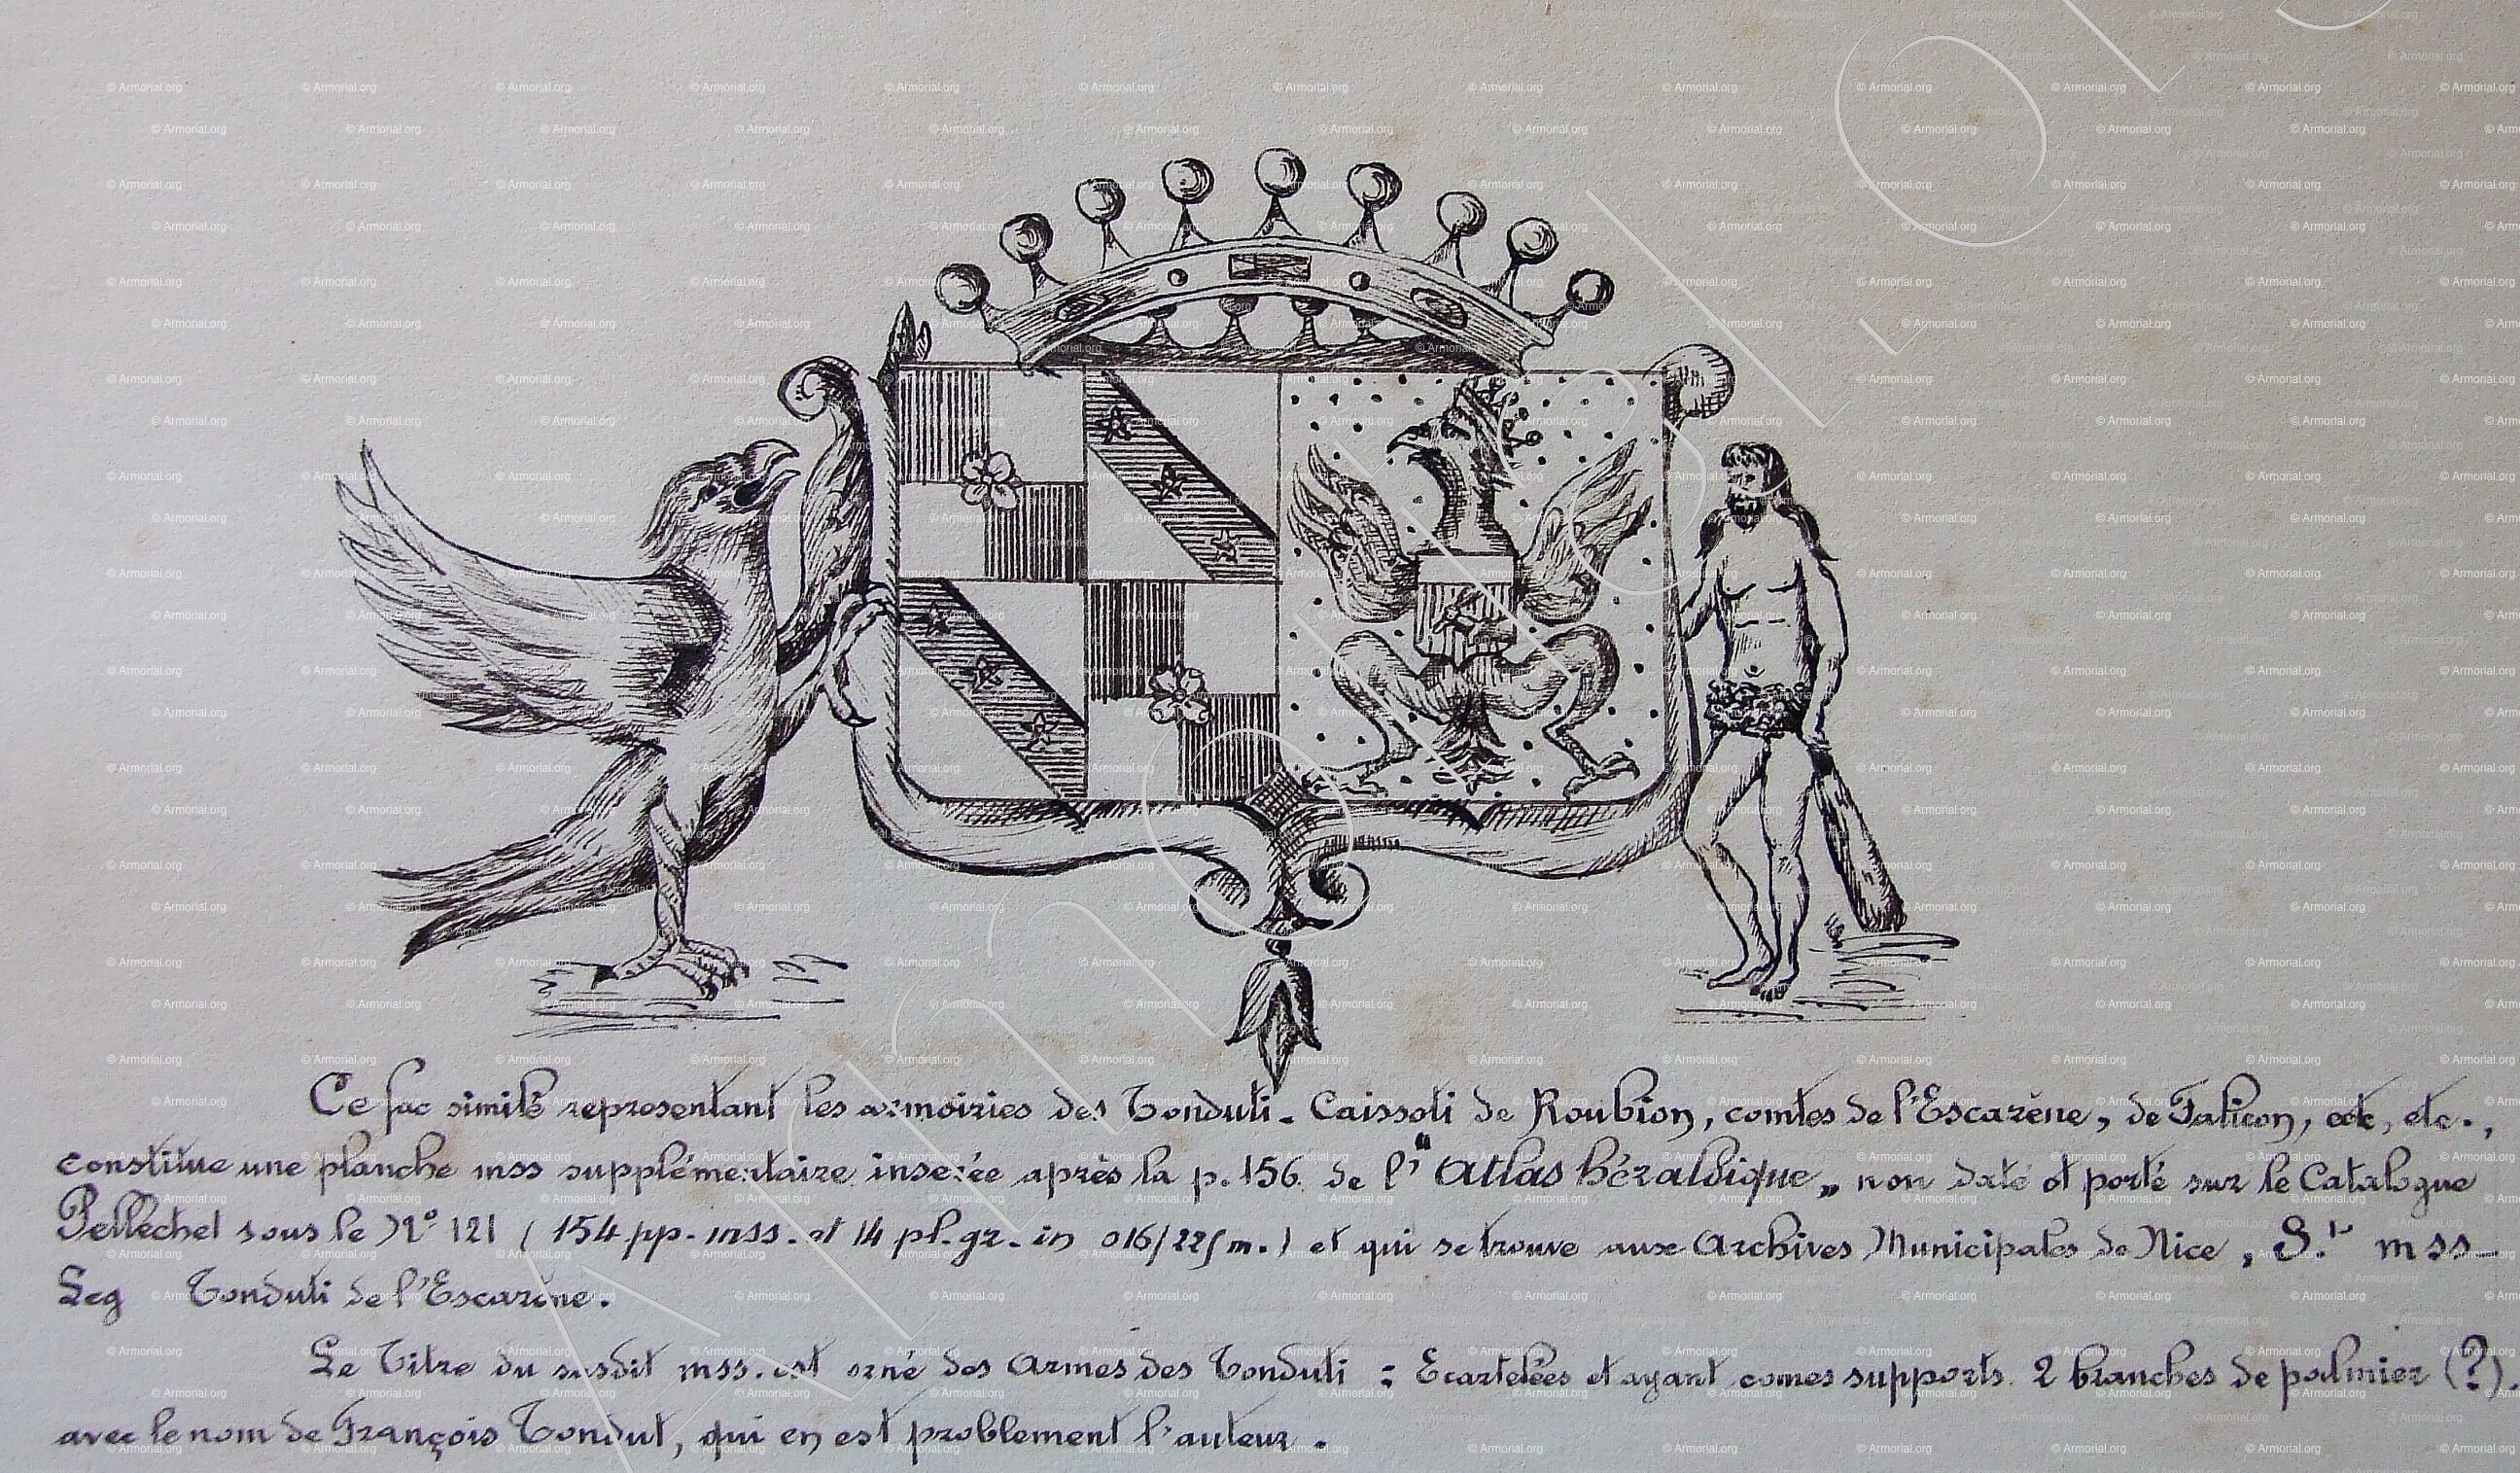 Ce fac similé representant les armoiries des Tonduti - Caissoti de Roubion, comtes de l'Escarène, de Falicon, ect, etc.,
constitue une planche mss supplémentaire inserée après la p. 156 de l'" Atlas héraldique „ non daté et porté sur le Catalogue
Pellechet sous le N° 121 ( 154 pp. mss. et 14 pl. gr. in 016/22 m. ) et qui se trouve aux Archives Municipales de Nice, mss
Leg Tonduti de l'Escarène.
Le Titre du susdit mss. est orné des Armes des Tonduti : Ecartelées et ayant comes supports 2 branches de palmier (?),
avec le nom de François Tondut, qui en est problement l'auteur.
© Armorial.org